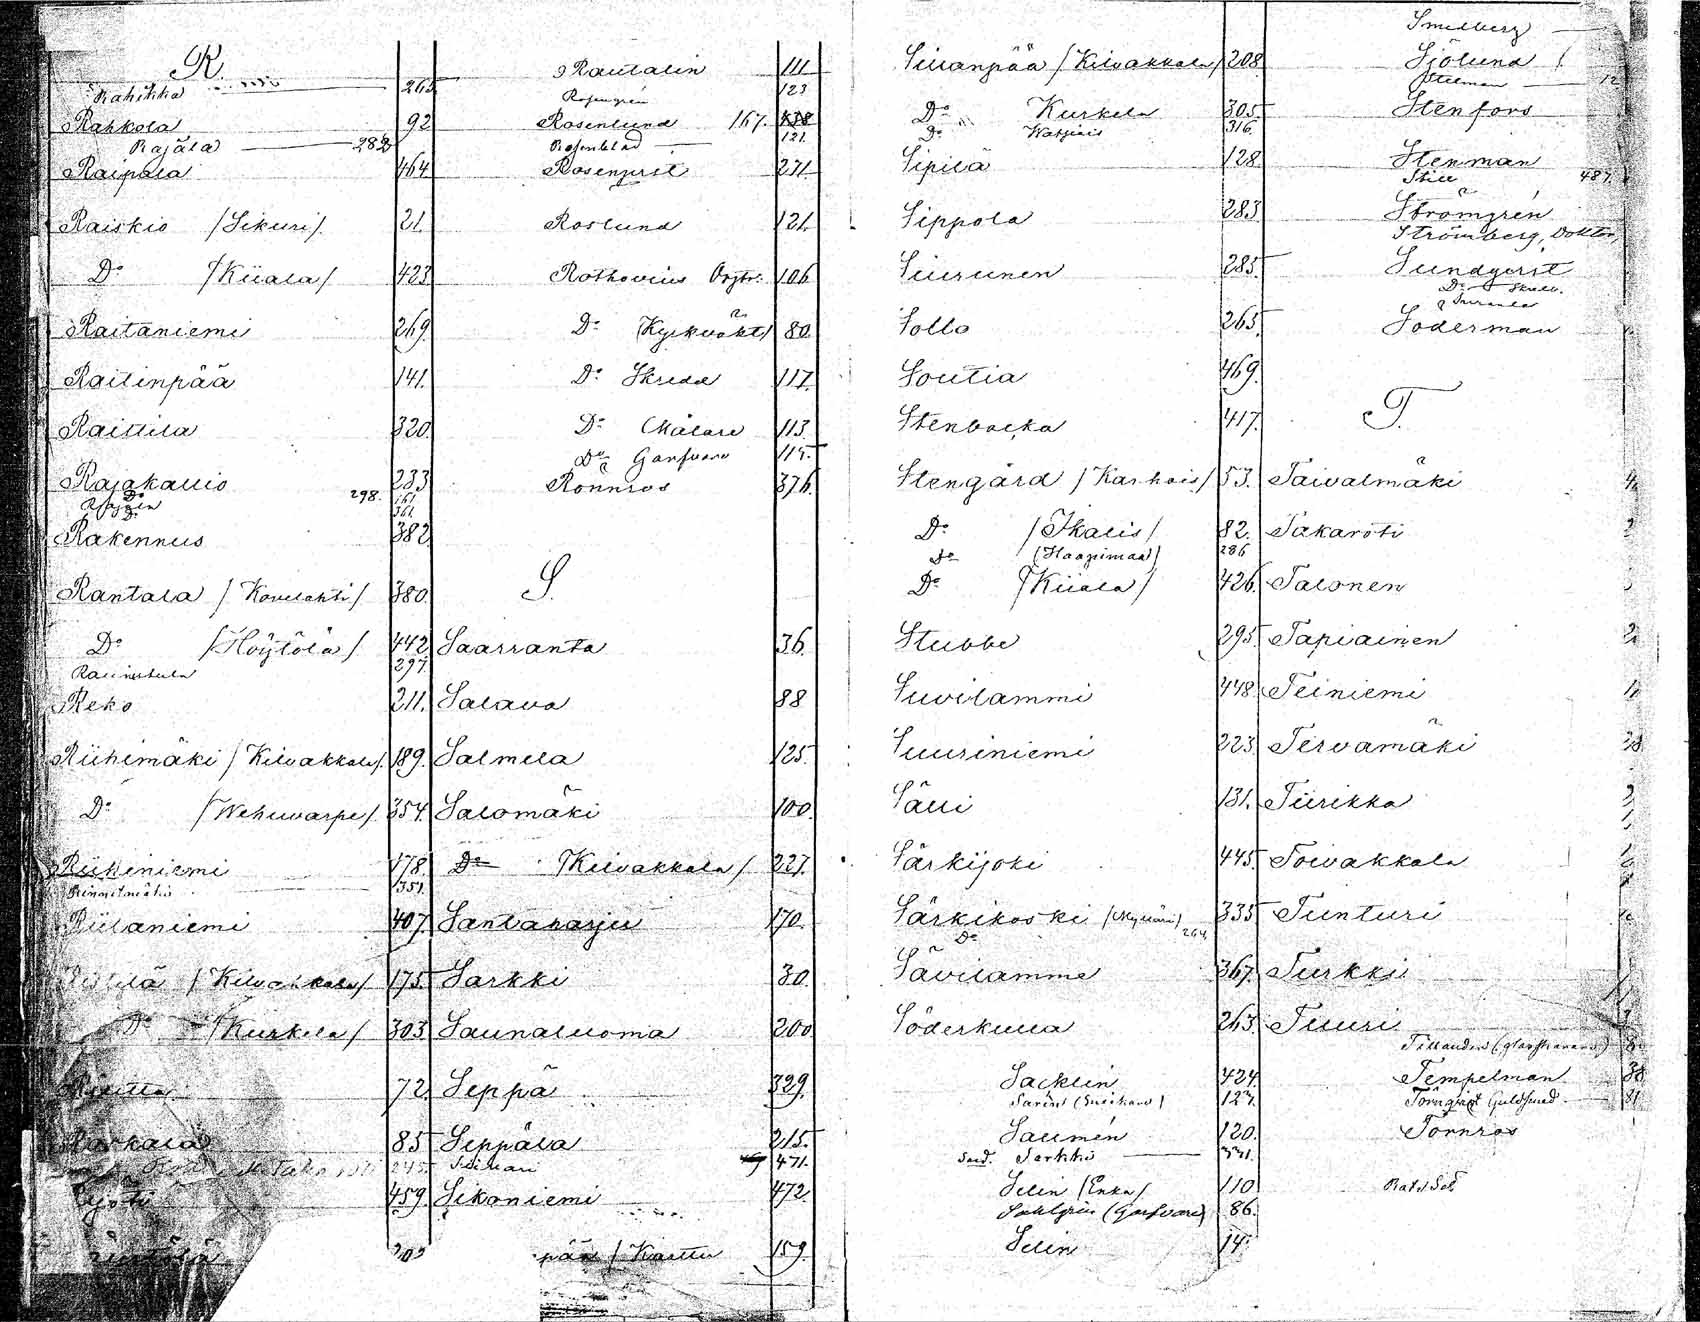 R
Rahikka 265
Rahkola 92
Rajala 282
Raipala 464
Raiskio /Sikuri/. 21.
Do /Kiiala/ 423
Raitaniemi 269.
Raitinpää 141.
Raittila 320.
Rajakallio 233
Do 298. 161
Do 361.
Rakennus 382
Rantala /Kovelahti/ 380.
Do /Höytölä/ 442
297.
Reko 211.
Riihimäki /Kilvakkala/. 189.
Do /Wehuvarpe/. 354.
Riiheniemi 178.
1351.
Riilaniemi 407.
/Kilvakkala/ 175.
Do /Kurkela/ 303
72
85
459.
Rautalin 111
Rosengrén 123
Rosenlund 167.
Rosenblad 121.
Rosenqvist 271
Roslund 121.
Rothovius 106
Do /Kyrkvakt/ 80.
Do Skredd 117
Do Målare 113.
Do Garfvare 115.
Rönnros 376.
S.
Saarranta 36.
Salava 88
Salmela 125.
Salomäki 100.
Do /Kilvakkala/ 227.
Santaharju 170.
Sarkki 30.
Saunaluoma 200
Seppä 329.
Seppälä 215.
471.
Sikaniemi 472.
pää /Karttu 159.
Siuanpää /Kilvakkala/ 208
Do Kurkela 305.
Do 316.
Sipilä 128.
Sippola 283
Siurunen 285.
Sollo 265
Soutia 469.
Stenbacka 417.
Stengård /Karhois/ 53.
Do /Ikalis/ 82.
Do (Haapimaa) 286
Do /Kiiala/ 426.
Stubbe 295.
Suvilammi 448
Suuriniemi 223.
Sälli 131.
Särkijoki 445
Särkikoski (Mylläri) 335
Do 264
Sävilamme 367.
Söderkulla 263.
Sacklin 424.
Sarén 127.
Salmén 120.
Sold. Sarkki 331.
Selin /Enka/ 110
Sahlgrén (Garfvare) 86.
Selin 14.
Smedberg
Sjölund
Stelman 12
Stenfors
Stenman
Still 487.
Strömgrén
Strömberg, Doktor,
Sundqvist
Do
Söderman
T.
Taivalmäki
Takaröti
Talonen
Tapiainen
Teiniemi
Tervamäki
Tiirikka
Toivakkala
Tunturi
Turkki
Tuuri
Tempelman 38
Törnqvist Guldsmed 81
Törnros